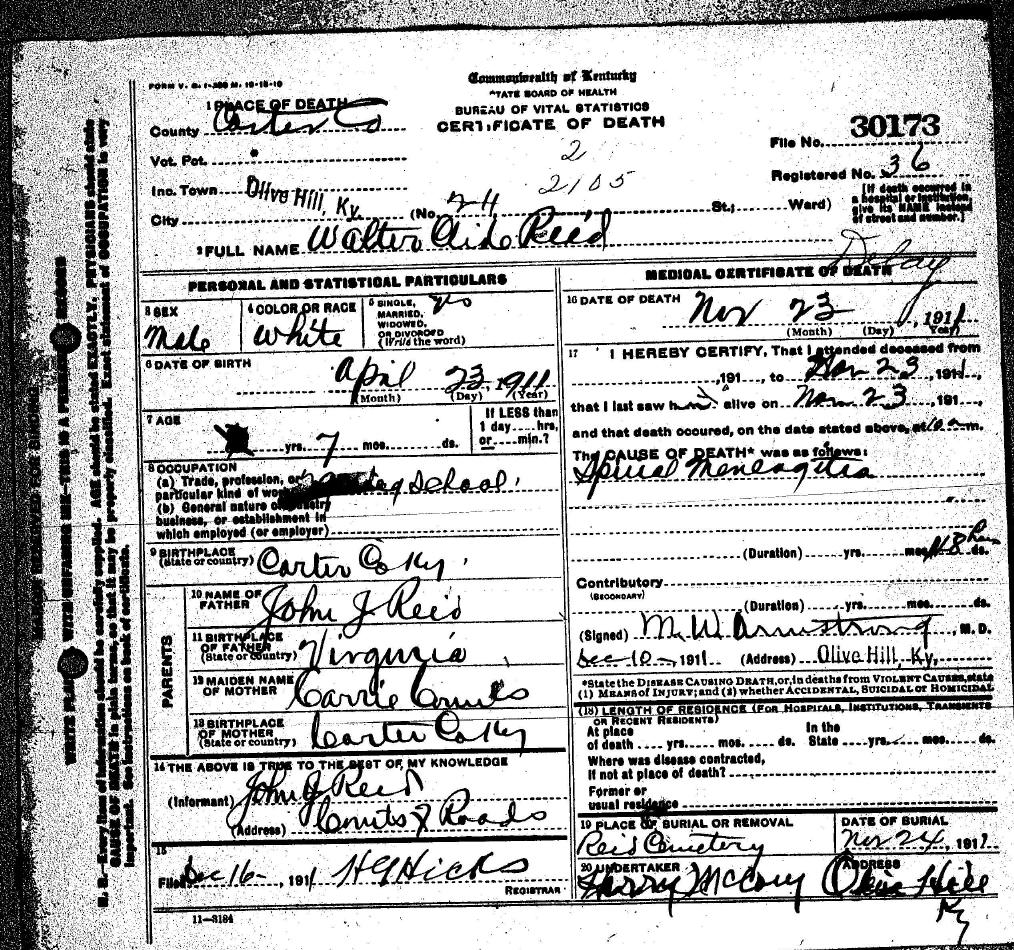 FORM V. S. 1-
Commonwealth of Kentucky
STATE BOARD OF HEALTH
BUREAU OF VITAL STATISTICS
CERTIFICATE OF DEATH
1 PLACE OF DEATH
County Carter Co
Vot. Pct.
2
File No. 30173
Inc. Town Olive Hill, Ky.
2105
Registered No. 36
[If death occurred in a hospital or institution, give its NAME instead of street and number.]
City (No. 24 St.; Ward)
2 FULL NAME Walter Reid
Delay
PERSONAL AND STATISTICAL PARTICULARS
3 SEX Male
4 COLOR OR RACE White
5 SINGLE, MARRIED, WIDOWED, OR DIVORCED (Write the word)
6 DATE OF BIRTH April 23, 1911
(Month) (Day) (Year)
7 AGE yrs. 7 mos. ds.
If LESS than 1 day hrs, or min.?
8 OCCUPATION
(a) Trade, profession, or particular kind of work School
(b) General nature of industry
business, or establishment in
which employed (or employer)
9 BIRTHPLACE (State or country) Carter Co Ky.
PARENTS
10 NAME OF FATHER John J Reid
11 BIRTHPLACE OF FATHER (State or country) Virginia
12 MAIDEN NAME OF MOTHER Carrie Counts
13 BIRTHPLACE OF MOTHER (State or country) Carter Co Ky
14 THE ABOVE IS TRUE TO THE BEST OF MY KNOWLEDGE
(Informant) John J Reid
(Address) Counts X Roads
15
Filed Dec 16, 1911 HG Hicks
REGISTRAR
11-3184
MEDICAL CERTIFICATE OF DEATH
16 DATE OF DEATH Nov 23, 1911
(Month) (Day) (Year)
17 I HEREBY CERTIFY, That I attended deceased from
, 191 , to Nov 23, 1911,
that I last saw him alive on Nov 23, 191 ,
and that death occured, on the date stated above, at 10 a m.
The CAUSE OF DEATH* was as follows:
Spinal Meneagitis
(Duration) yrs. mos. 48 hrs ds.
Contributory
(SECONDARY)
(Duration) yrs. mos. ds.
(Signed) M. W. Armstrong, M. D.
Dec 10, 1911 (Address) Olive Hill, Ky.
*State the DISEASE CAUSING DEATH, or, in deaths from VIOLENT CAUSES, state
(1) MEANS OF INJURY; and (2) whether ACCIDENTAL, SUICIDAL or HOMICIDAL
(18) LENGTH OF RESIDENCE (FOR HOSPITALS, INSTITUTIONS, TRANSIENTS
OR RECENT RESIDENTS)
At place of death yrs. mos. ds. In the State yrs. mos. ds.
Where was disease contracted,
If not at place of death?
Former or
usual residence
19 PLACE OF BURIAL OR REMOVAL Reid Cemetery
DATE OF BURIAL Nov 24, 1911
20 UNDERTAKER Harry McCoy
ADDRESS Olive Hill
Ky
MARGIN RESERVED FOR BINDING
WRITE PLAINLY WITH UNFADING INK—THIS IS A PERMANENT RECORD
N. B.—Every item of information should be carefully supplied. AGE should be stated EXACTLY. PHYSICIANS should state
CAUSE OF DEATH in plain terms, so that it may be properly classified. Exact statement of OCCUPATION is very
important. See instructions on back of certificate.